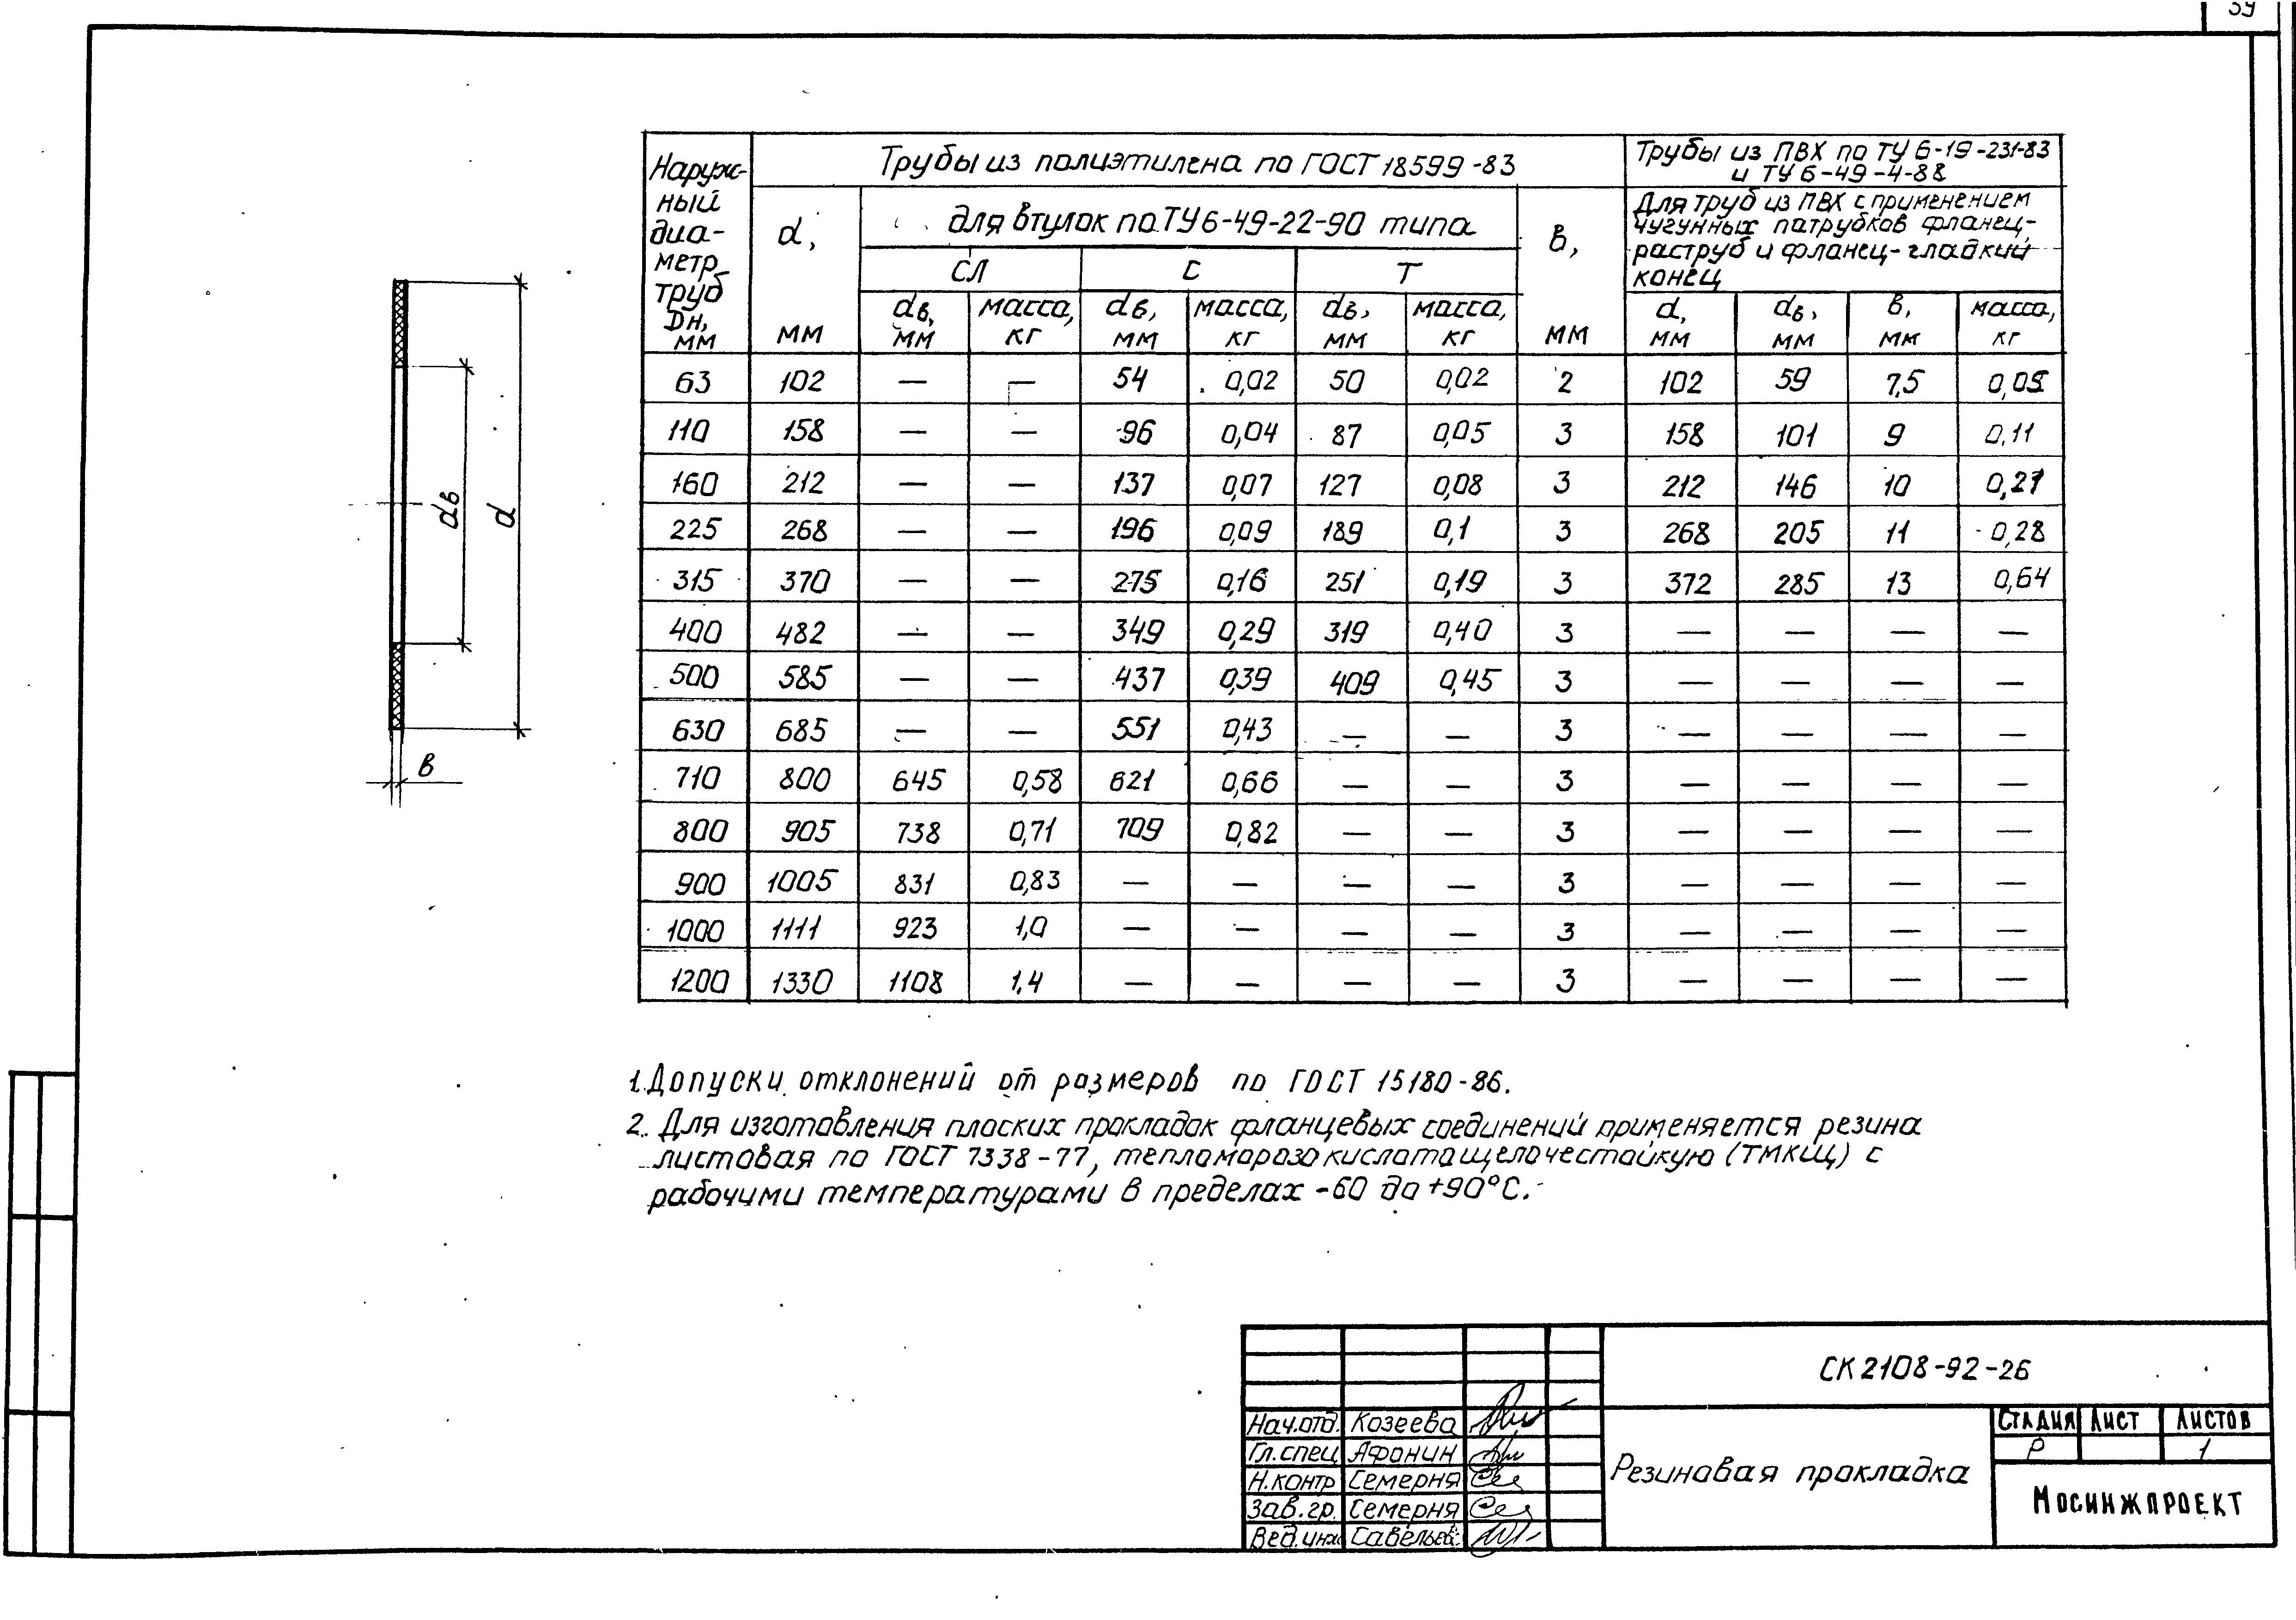 39
Трубы из полиэтилена по ГОСТ 18599-83
Трубы из ПВХ по ТУ 6-19-231-83
и ТУ 6-49-4-88
Наруж-
ный
диа-
метр
труб
Dн,
мм
d,
мм
для втулок по ТУ 6-49-22-90 типа
в,
мм
Для труб из ПВХ с применением
чугунных патрубков фланец-
раструб и фланец-гладкий
конец
СЛ С Т
dв, мм масса, кг dв, мм масса, кг dв, мм масса, кг d, мм dв, мм в, мм масса, кг
63 102 — — 54 0,02 50 0,02 2 102 59 7,5 0,05
110 158 — — 96 0,04 87 0,05 3 158 101 9 0,11
160 212 — — 137 0,07 127 0,08 3 212 146 10 0,27
225 268 — — 196 0,09 189 0,1 3 268 205 11 0,28
315 370 — — 275 0,16 251 0,19 3 372 285 13 0,64
400 482 — — 349 0,29 319 0,40 3 — — — —
500 585 — — 437 0,39 409 0,45 3 — — — —
630 685 — — 551 0,43 — — 3 — — — —
710 800 645 0,58 621 0,66 — — 3 — — — —
800 905 738 0,71 709 0,82 — — 3 — — — —
900 1005 831 0,83 — — — — 3 — — — —
1000 1111 923 1,0 — — — — 3 — — — —
1200 1330 1108 1,4 — — — — 3 — — — —
dв
d
в
1. Допуски отклонений от размеров по ГОСТ 15180-86.
2. Для изготовления плоских прокладок фланцевых соединений применяется резина
листовая по ГОСТ 7338-77, тепломорозокислотощелочестойкую (ТМКЩ) с
рабочими температурами в пределах -60 до +90°С.
СК 2108-92-26
Нач.отд. Козеева
Гл.спец Афонин
Н.контр Семерня
Зав.гр. Семерня
Вед.инж Савельев
Резиновая прокладка
Стадия Лист Листов
Р 1
Мосинжпроект